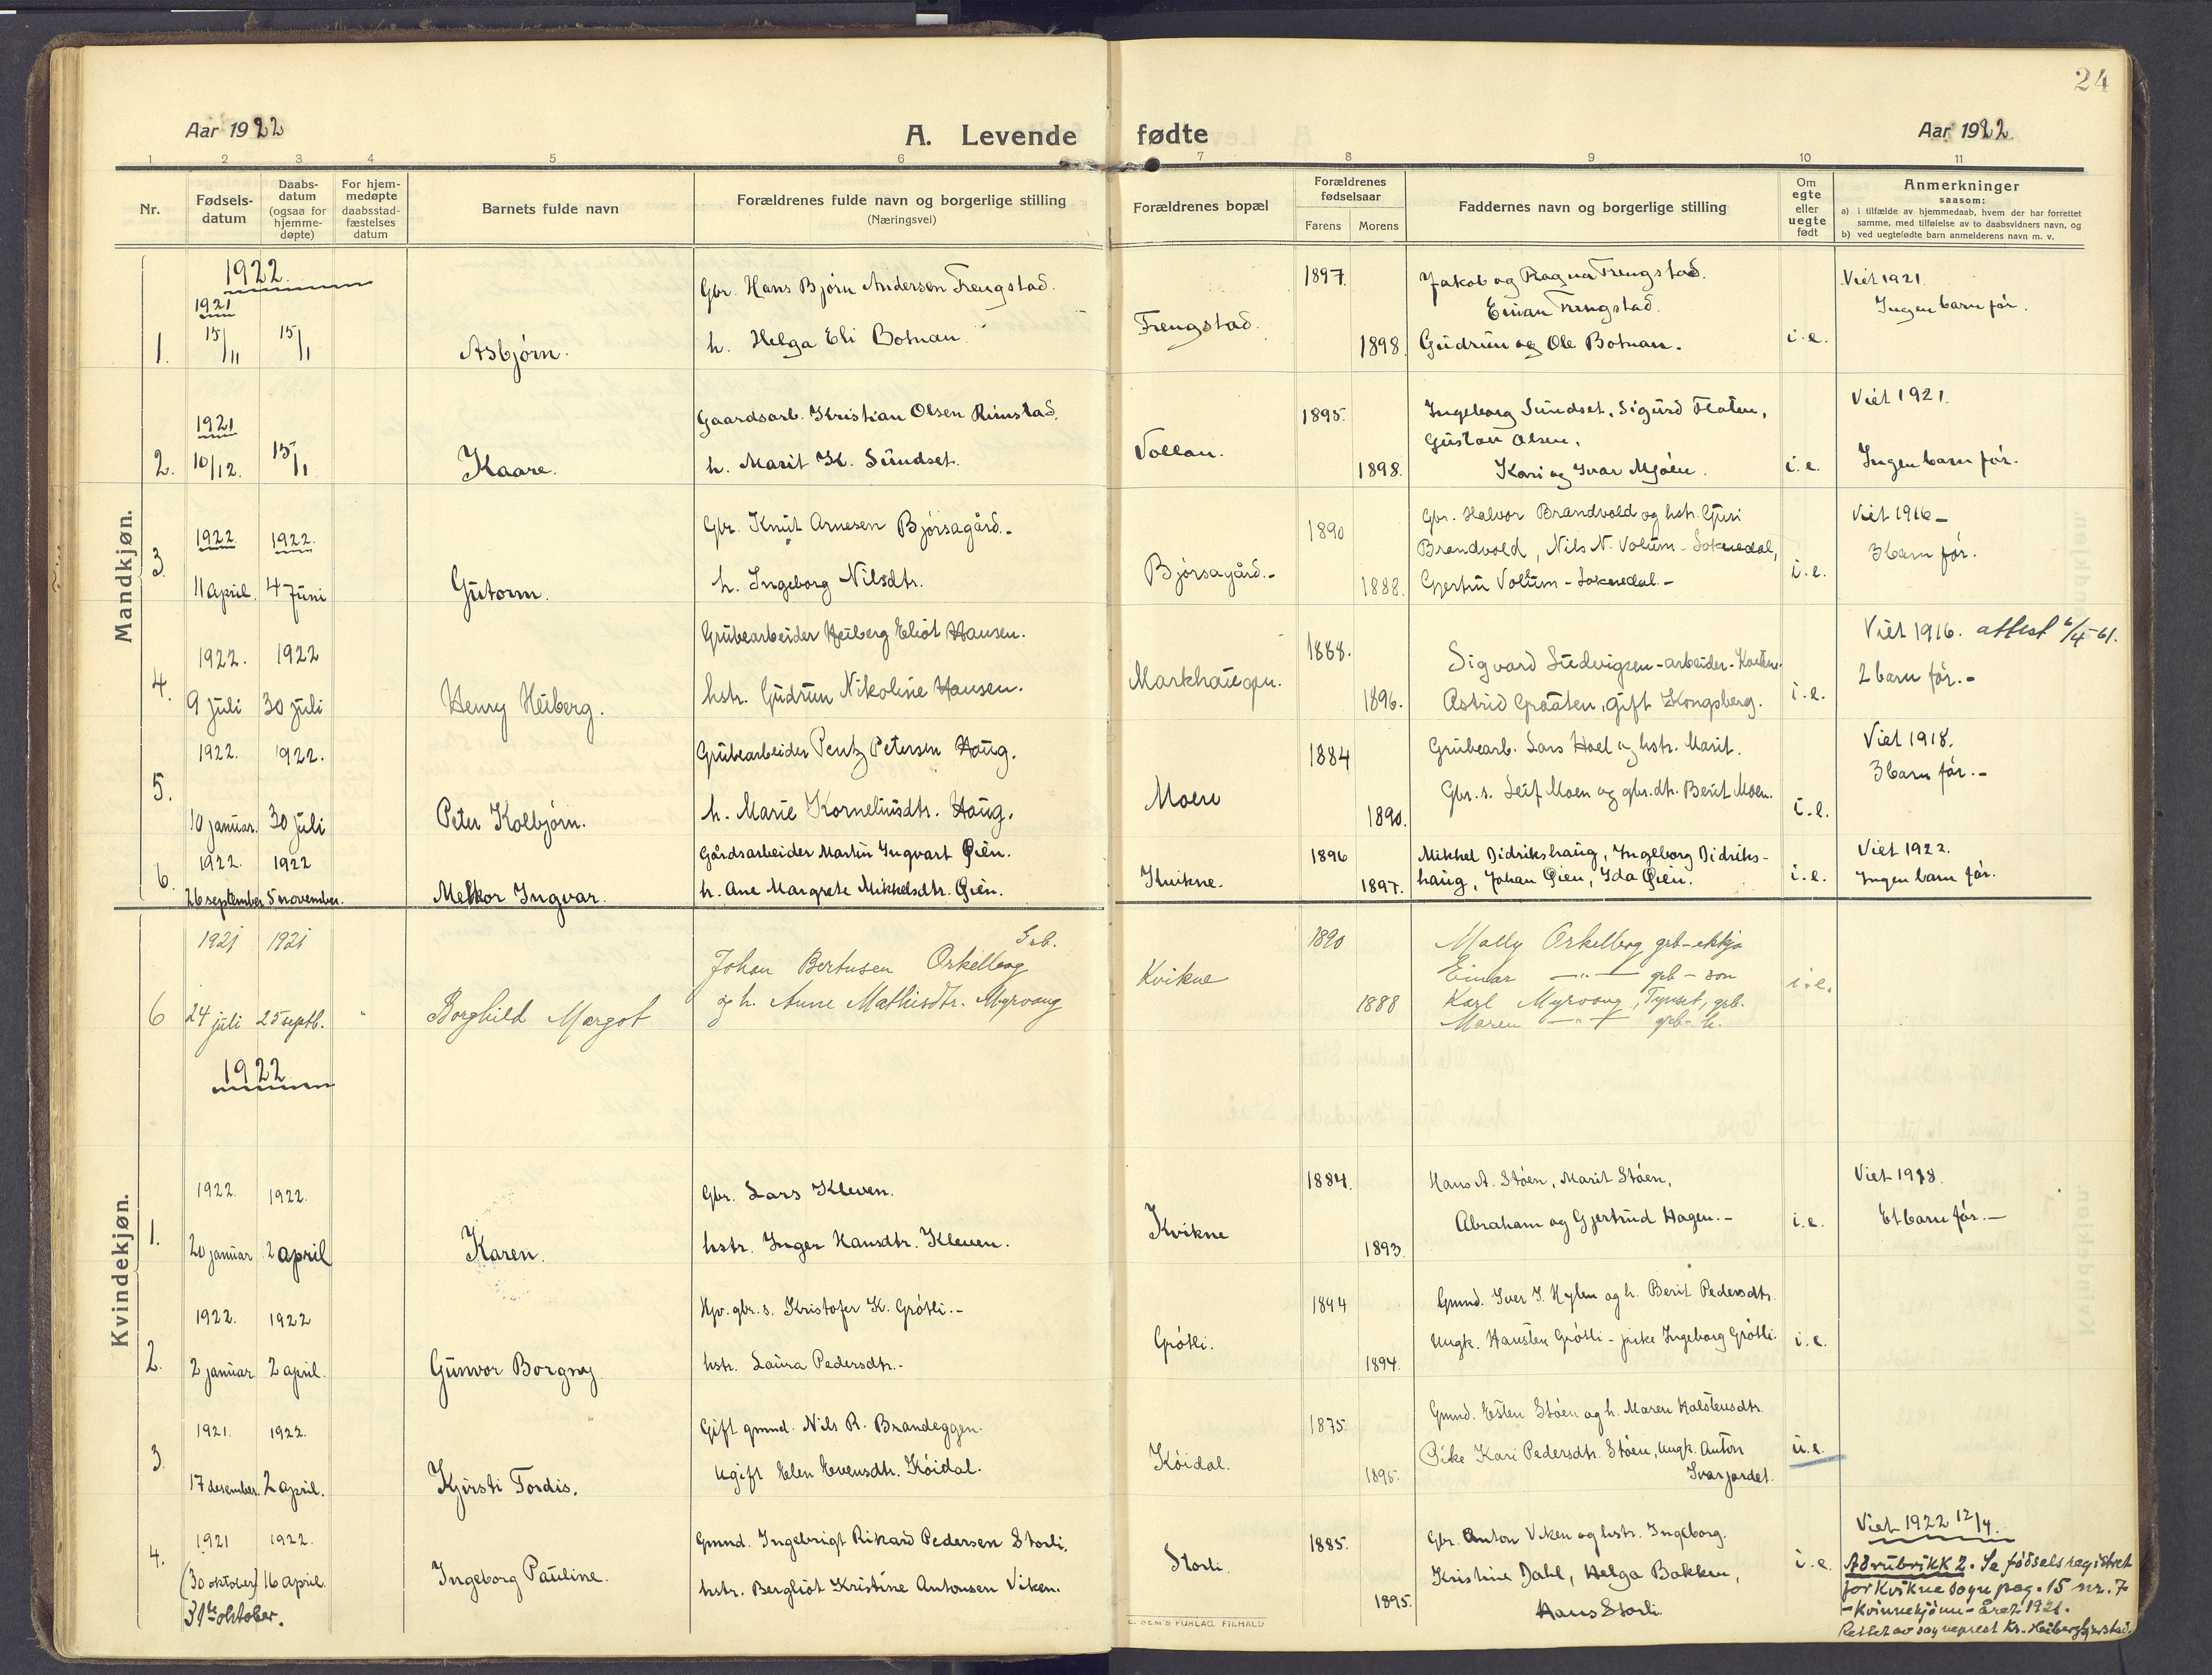 24
Aar 1922
A. Levende fødte
Aar 1922
1 2 3 4 5 6 7 8 9 10 11
Nr.
Fødsels-
datum
Daabs-
datum
(ogsaa for
hjemme-
døpte)
For hjem-
medøpte
daabsstad-
fæstelses
datum
Barnets fulde navn
Forældrenes fulde navn og borgerlige stilling
(Næringsvei)
Forældrenes bopæl
Forældrenes
fødselsaar
Farens Morens
Faddernes navn og borgerlige stilling
Om
egte
eller
uegte
født
Anmerkninger
saasom:
a) i tilfælde av hjemmedaab, hvem der har forrettet
samme, med tilføielse av to daabsvidners navn, og
b) ved uegtefødte barn anmelderens navn m. v.
Mandkjøn.
1922.
1921
1. 15/11 15/1 Asbjørn.
Gbr. Hans Bjørn Andersen Frengstad.
h. Helga Eli Botnan.
Frengstad.
1897.
1898.
Jakob og Ragna Frengstad.
Einar Frengstad.
Gudrun og Ole Botnan.
i.e.
Viet 1921
Ingen barn før.
1921
2. 10/12. 15/1 Kaare.
Gaardsarb. Kristian Olsen Rimstad.
h. Marit K. Sundset.
Vollan.
1895.
1898.
Ingeborg Sundset, Sigurd Floten,
Gustav Olsen,
Kari og Ivar Mjøen.
i.e.
Viet 1921.
Ingen barn før.
1922 1922.
3. 11 april. 4 juni Gutorm.
Gbr. Knut Arnesen Bjørsagård.-
h. Ingeborg Nilsdtr.
Bjørsagård.-
1890
1888.
Gbr. Halvor Brandvold og hstr. Guri
Brandvold, Nils N. Volum - Soknedal,
Gjertru Volum - Soknedal.-
i.e.
Viet 1916-
3 barn før.
1922. 1922
4. 9 juli 30 juli Henry Heiberg.
Grubearbeider Heiberg Eliot Hansen.
hstr. Gudrun Nikoline Hansen.
Markhaugen.
1888.
1896.
Sigvard Ludvigsen - arbeider -
Astrid Graaten, gift Kongsberg.
i.e.
Viet 1916. attest 6/4-61.
2 barn før.-
1922. 1922.
5. 10 januar. 30 juli Peter Kolbjørn.
Grubearbeider Pentz Petersen Haug.
h. Marie Korneliusdtr. Haug.
Moen
1884
1890.
Grubearb. Lars Hoel og hstr. Marit.
Gbr.s. Leif Moen og gbr.dtr. Berit Moen.
i.e.
Viet 1918.
3 barn før.-
1922. 1922
6. 26 september 5 november. Melkor Ingvar.
Gårdsarbeider Martin Ingvart Øien.
h. Ane Margrete Mikkelsdtr. Øien.
Kvikne.
1896
1897.
Mikkel Didrikshaug, Ingeborg Didriks-
haug, Johan Øien, Ida Øien.
i.e.
Viet 1922.
Ingen barn før.
Kvindekjøn.
1921 1921
6 24 juli 25 septb. " Borghild Margot
Grb.
Johan Bertusen Orkelbog
og h. Anne Mathisdtr. Myrvang
Kvikne
1890
1888
Molly Orkelbog grb-ekkja
Einar —"— grb - son
Karl Myrvang, Tynset, grb.
Maren —"— grb - h.
i.e.
1922
1922. 1922.
1. 20 januar 2 april Karen.
Gbr. Lars Kleven.
hstr. Inger Hansdtr. Kleven.
Kvikne
1884.
1893.
Hans A. Støen, Marit Støen,
Abraham og Gjertrud Hagen.-
i.e.
Viet 1918.
Et barn før.-
1922. 1922
2. 2 januar 2 april. Gunvor Borgny
Hpv. gbr.s. Kristofer K. Grøtli.-
hstr. Laura Pedersdtr.-
Grøtli.
1894
1894.
Gmnd. Iver I. Nylen og h. Berit Pedersdtr.
Ungk. Hansten Grøtli - pike Ingeborg Grøtli.
i.e.
1921. 1922.
3. 17 desember. 2 april. Kjersti Tordis.
Gift gmnd. Nils R. Brandeggen.
Ugift Elen Evensdtr. Køidal.
Køidal.
1875.
1895.
Gmnd. Esten Støen og h. Maren Halstensdtr.
Pike Kari Pedersdtr. Støen, Ungk. Anton
Ivarjordet.
u.e.
1921 1922.
4. (30 oktober) 16 april.
31te oktober.
Ingeborg Pauline.
Gmnd. Ingebrigt Rikard Pedersen Storli.
hstr. Bergliot Kristine Antonsen Viken.
Storli.
1885.
1895.
Gbr. Anton Viken og hstr. Ingeborg.
Kristine Dahl, Helga Bakken,
Hans Storli.
i.e.
Viet 1922 12/4.
Ad rubrikk 2. Se fødselsregistret
for Kvikne sogn pag. 15 nr. 7
- Kvinnekjønn - året 1921.
Rettet av sogneprest Kr. Heiberg Gjerstad.
E. SEM'S FORLAG, FR.HALD